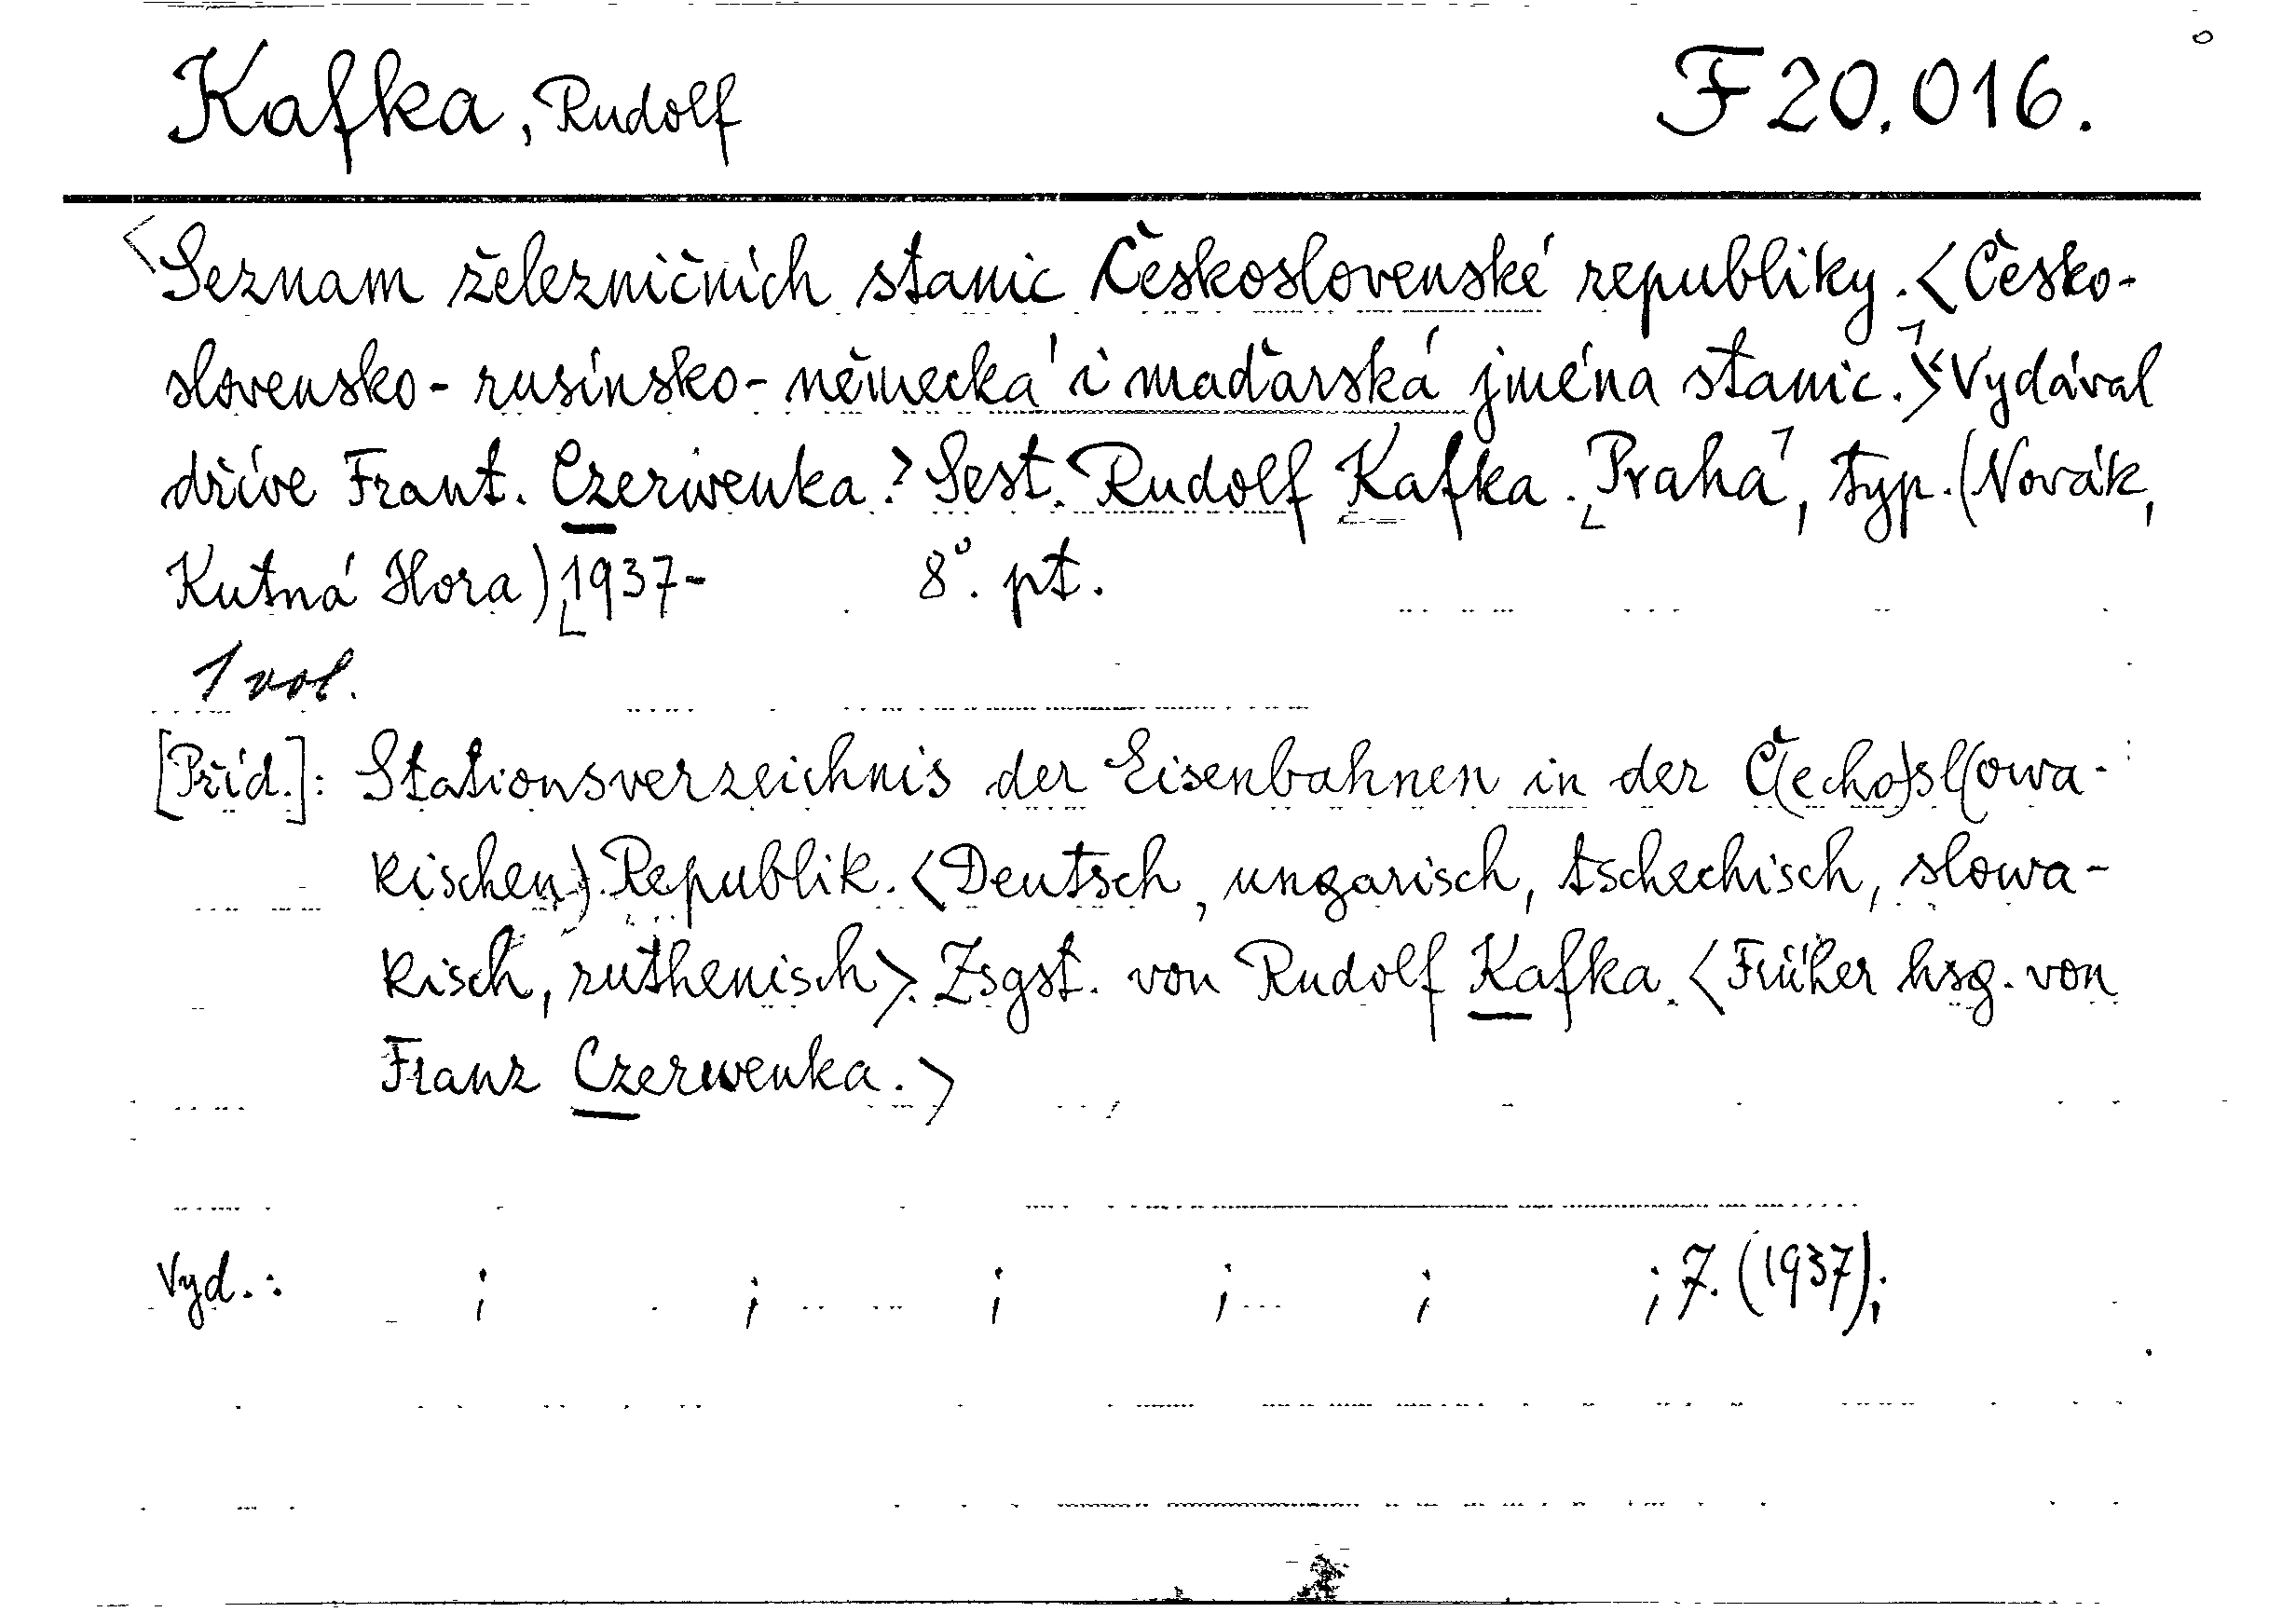 Kafka, Rudolf F 20.016.
<Seznam železničních stanic Československé republiky. <Česko-
slovensko-rusínsko-německá i maďarská jména stanic.> Vydával
dříve Frant. Czerwenka.> Sest. Rudolf Kafka. Praha, typ. (Novák,
Kutná Hora) 1937- 8°. pt.
1 vol.
[Příd.]: Stationsverzeichnis der Eisenbahnen in der Č(echo)sl(owa-
kischen) Republik. <Deutsch, ungarisch, tschechisch, slowa-
kisch, ruthenisch>. Zsgst. von Rudolf Kafka. <Früher hsg. von
Franz Czerwenka.>
Vyd.: ; ; ; ; ; ; 7. (1937);